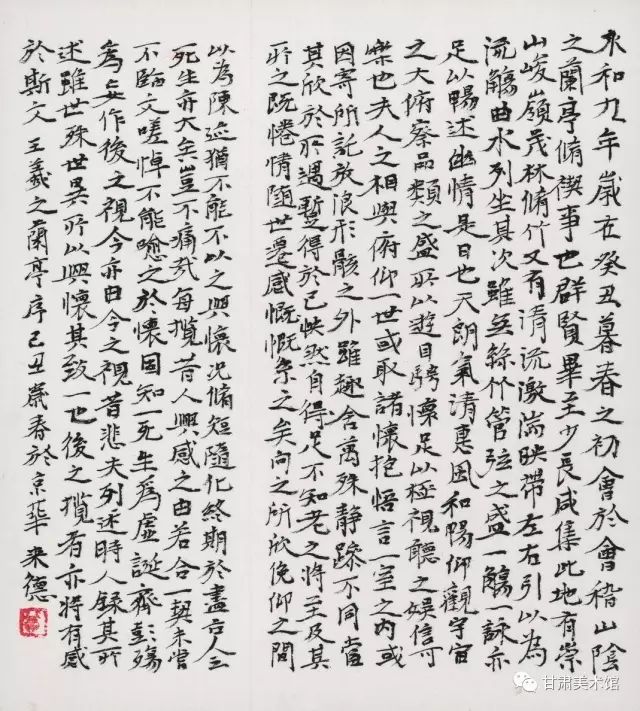 永和九年歲在癸丑暮春之初會於會稽山陰
之蘭亭脩禊事也群賢畢至少長咸集此地有崇
山峻嶺茂林脩竹又有清流激湍映帶左右引以為
流觴曲水列坐其次雖無絲竹管弦之盛一觴一詠亦
足以暢述幽情是日也天朗氣清惠風和暢仰觀宇宙
之大俯察品類之盛所以遊目騁懷足以極視聽之娛信可
樂也夫人之相與俯仰一世或取諸懷抱悟言一室之內或
因寄所託放浪形骸之外雖趣舍萬殊靜躁不同當
其欣於所遇蹔得於己怏然自得足不知老之將至及其
所之既惓情隨世遷感慨慨係之矣向之所欣俛仰之間
以為陳迹猶不能不以之興懷況脩短隨化終期於盡古人云
死生亦大矣豈不痛哉每攬昔人興感之由若合一契未嘗
不臨文嗟悼不能喻之於懷固知一死生為虛誕齊彭殤
為妄作後之視今亦由今之視昔悲夫列述時人錄其所
述雖世殊世異所以興懷其致一也後之攬者亦將有感
於斯文 王羲之蘭亭序己丑歲春於京華 來德
甘肃美术馆